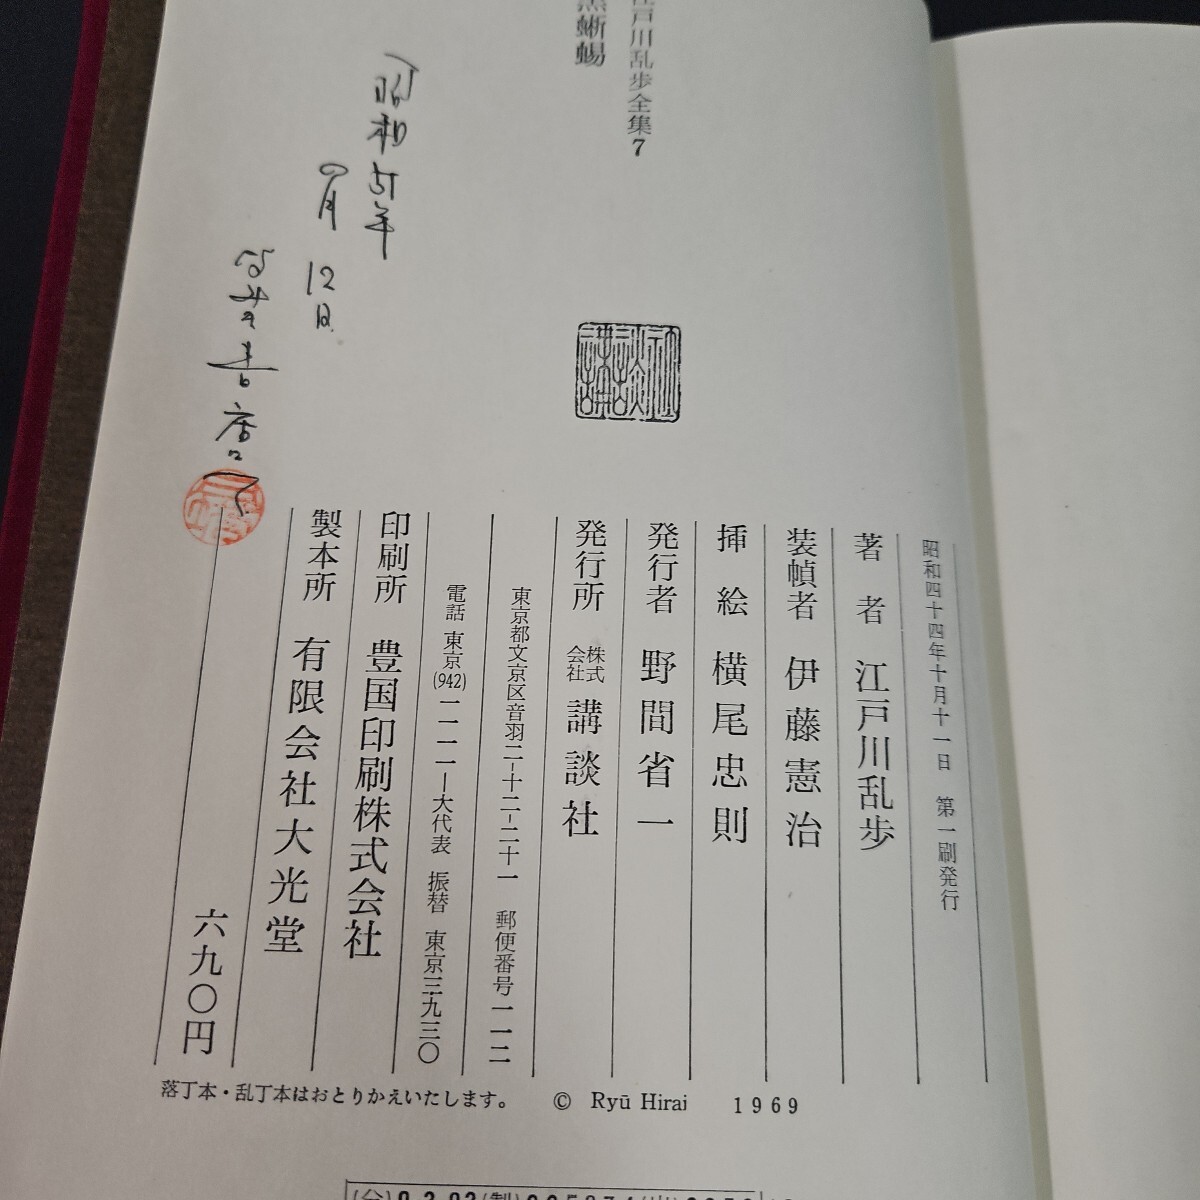 江戸川乱歩全集7
黒蜥蜴
昭和51年
12日
昭和四十四年十月十一日 第一刷発行
著者 江戸川乱歩
装幀者 伊藤憲治
挿絵 横尾忠則
発行者 野間省一
発行所 株式会社 講談社
東京都文京区音羽二-十二-二十一 郵便番号一一二
電話 東京(942)一一一一-大代表 振替 東京三九三〇
印刷所 豊国印刷株式会社
製本所 有限会社大光堂
六九〇円
落丁本・乱丁本はおとりかえいたします。 © Ryū Hirai 1969